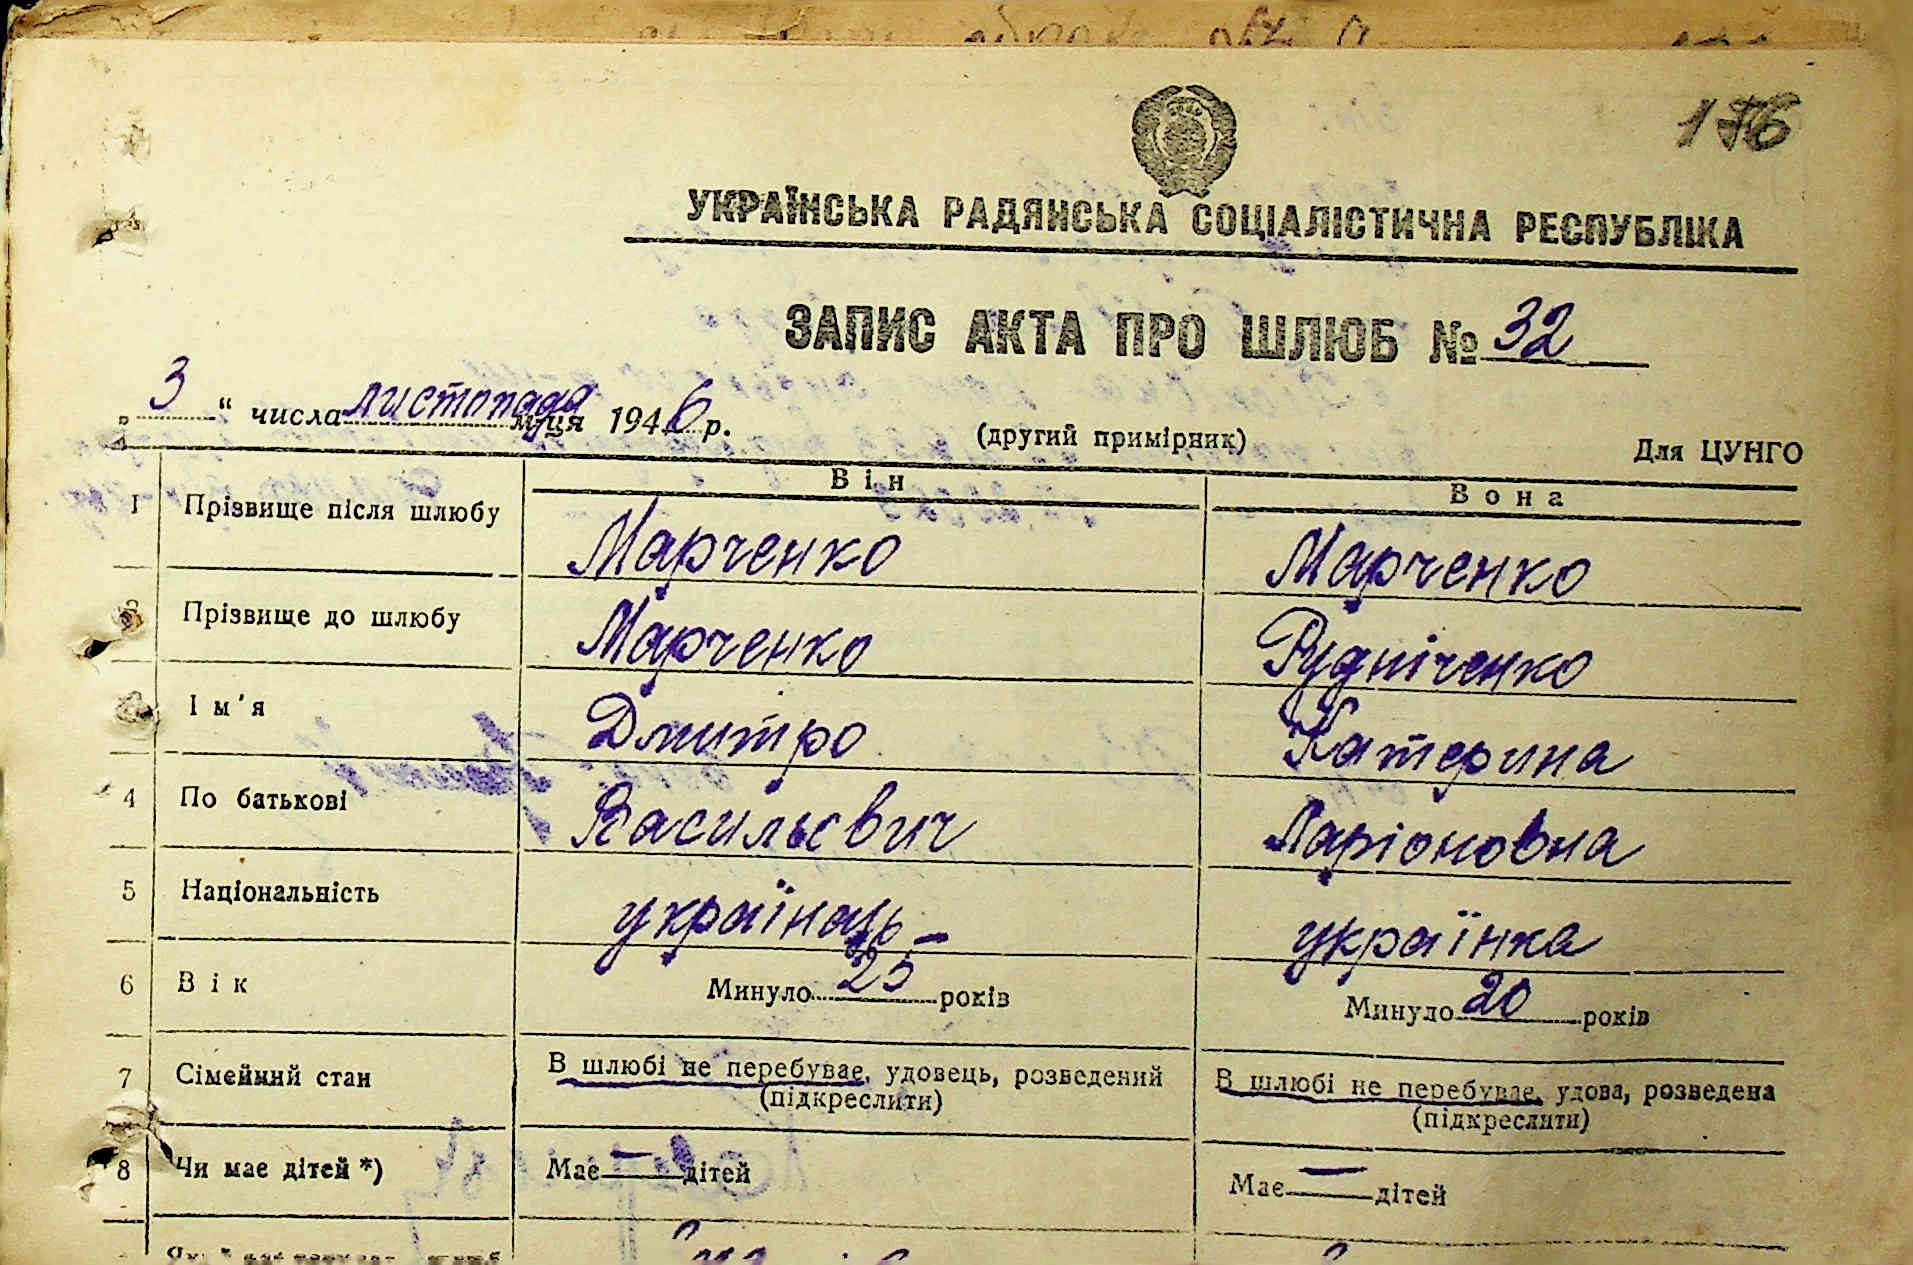 176
УКРАЇНСЬКА РАДЯНСЬКА СОЦІАЛІСТИЧНА РЕСПУБЛІКА
ЗАПИС АКТА ПРО ШЛЮБ № 32
„ 3 “ числа листопада м-ця 1946 р.
(другий примірник)
Для ЦУНГО
Він Вона
1 Прізвище після шлюбу Марченко Марченко
2 Прізвище до шлюбу Марченко Рудніченко
Ім'я Дмитро Катерина
4 По батькові Васильєвич Ларіоновна
5 Національність українаць украінка
6 Вік Минуло 25 років Минуло 20 років
7 Сімейний стан В шлюбі не перебуває, удовець, розведений В шлюбі не перебуває, удова, розведена
(підкреслити) (підкреслити)
8 Чи має дітей *) Має — дітей Має — дітей